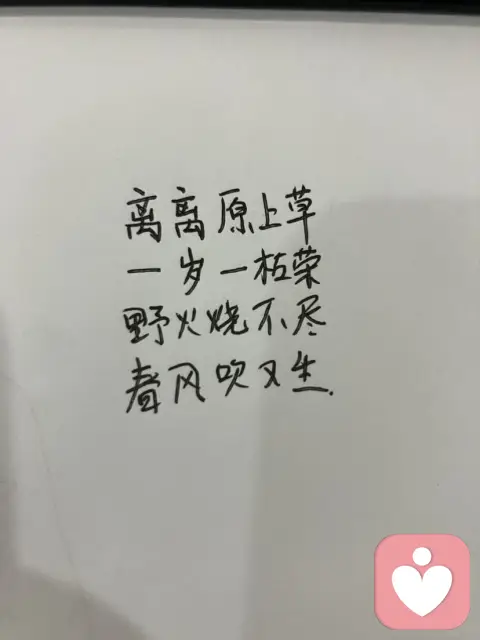 离离原上草
一岁一枯荣
野火烧不尽
春风吹又生.